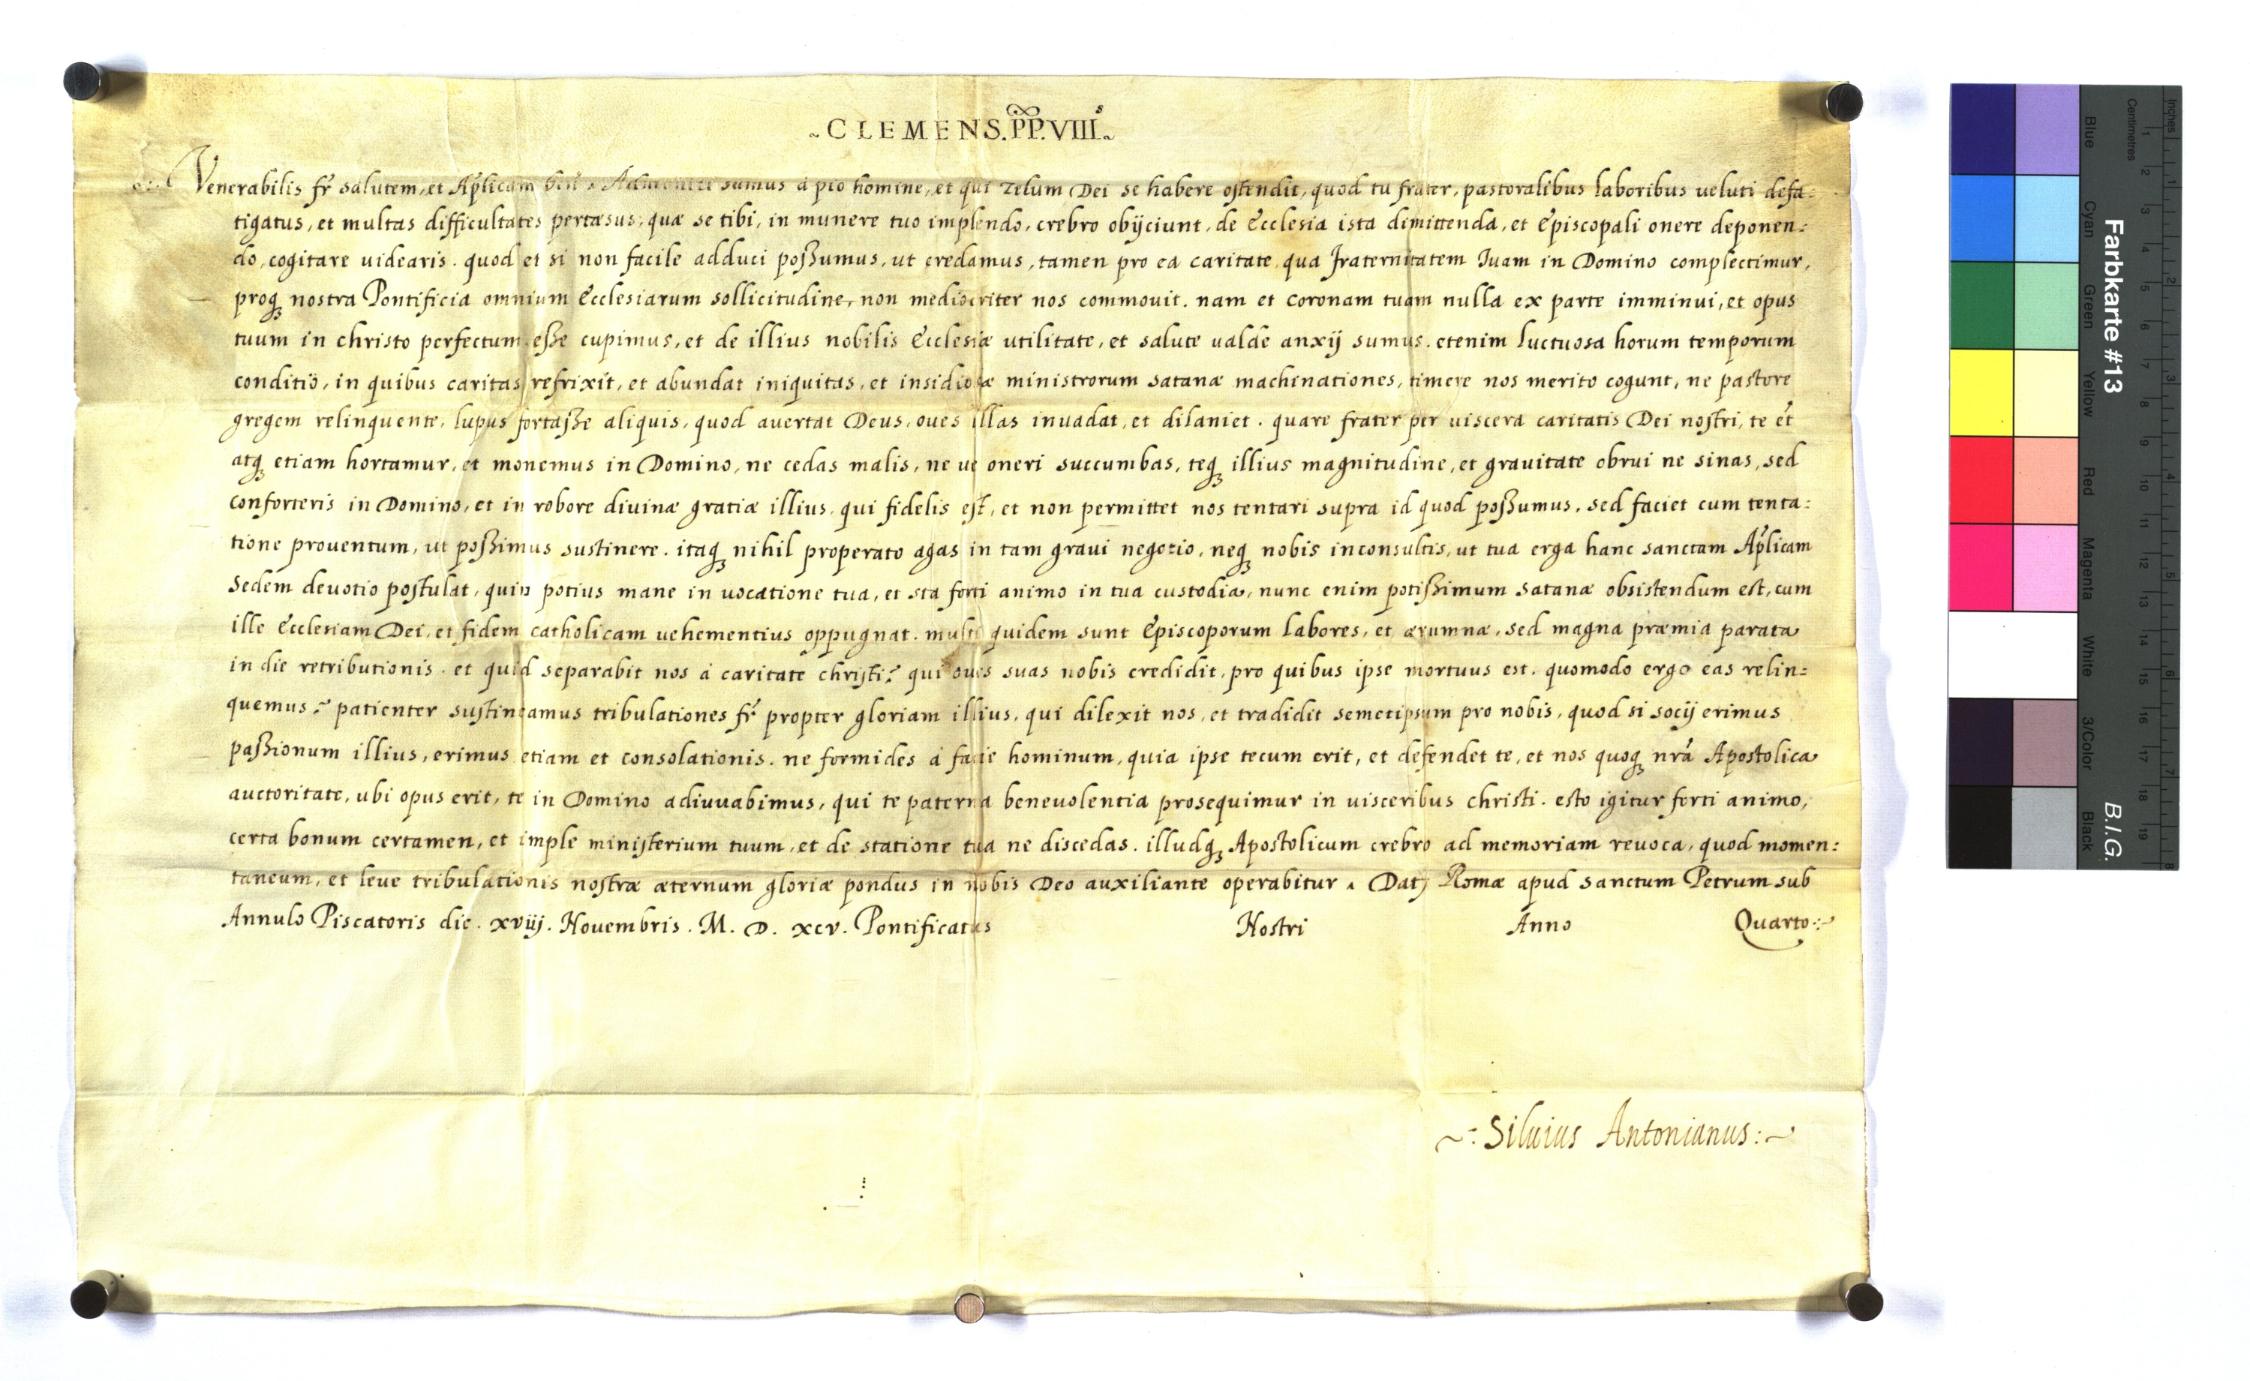 ~CLEMENS.PP.VIIIs~
Venerabilis fr̃ salutem, et Aplicam beñ. Admoniti sumus á pio homine, et qui zelum Dei se habere ostendit, quod tu frater, pastoralibus laboribus veluti defa:
tigatus, et multas difficultates pertæsus, quæ se tibi, in munere tuo implendo, crebro obijciunt, de Ecclesia ista dimittenda, et Episcopali onere deponen:
do, cogitare videaris. quod et si non facile adduci possumus, ut credamus, tamen pro ea caritate, qua fraternitatem tuam in Domino complectimur,
proq; nostra Pontificia omnium Ecclesiarum sollicitudine, non mediocriter nos commovit. nam et coronam tuam nulla ex parte imminui, et opus
tuum in christo perfectum esse cupimus, et de illius nobilis Ecclesiæ utilitate, et salute valde anxij sumus. etenim luctuosa horum temporum
conditio, in quibus caritas refrixit, et abundat iniquitas, et insidiosæ ministrorum satanæ machinationes, timere nos merito cogunt, ne pastore
gregem relinquente, lupus fortasse aliquis, quod avertat Deus, oves illas invadat, et dilaniet. quare frater per viscera caritatis Dei nostri, te et
atq; etiam hortamur, et monemus in Domino, ne cedas malis, ne ve oneri succumbas, teq; illius magnitudine, et gravitate obrui ne sinas, sed
conforteris in Domino, et in robore divinæ gratiæ illius, qui fidelis est, et non permittet nos tentari supra id quod possumus, sed faciet cum tenta:
tione proventum, ut possimus sustinere. itaq; nihil properato agas in tam gravi negotio, neq; nobis inconsultis, ut tua erga hanc sanctam Aplicam
Sedem devotio postulat, quin potius mane in vocatione tua, et sta forti animo in tua custodia, nunc enim potissimum satanæ obsistendum est, cum
ille Ecclesiam Dei, et fidem catholicam vehementius oppugnat. multi quidem sunt Episcoporum labores, et ærumnæ, sed magna præmia parata
in die retributionis. et quid separabit nos á caritate christi? qui oves suas nobis credidit, pro quibus ipse mortuus est. quomodo ergo eas relin:
quemus? patienter sustineamus tribulationes fr̃ propter gloriam illius, qui dilexit nos, et tradidit semetipsum pro nobis, quod si socij erimus
passionum illius, erimus etiam et consolationis. ne formides á facie hominum, quia ipse tecum erit, et defendet te, et nos quoq; nrã Apostolica
auctoritate, ubi opus erit, te in Domino adiuvabimus, qui te paterna benevolentia prosequimur in visceribus christi. esto igitur forti animo,
certa bonum certamen, et imple ministerium tuum, et de statione tua ne discedas. illudq; Apostolicum crebro ad memoriam revoca, quod momen:
taneum, et leve tribulationis nostræ æternum gloriæ pondus in nobis Deo auxiliante operabitur. Dat; Romæ apud sanctum Petrum sub
Annulo Piscatoris die. xviij. Novembris. M. D. xcv. Pontificatus Nostri Anno Quarto:~
~: Silvius Antonianus:~
Farbkarte #13
B.I.G.
Blue
Cyan
Green
Yellow
Red
Magenta
White
3/Color
Black
Centimetres
Inches
1 2 3 4 5 6 7 8 9 10 11 12 13 14 15 16 17 18 19
1 2 3 4 5 6 7 8